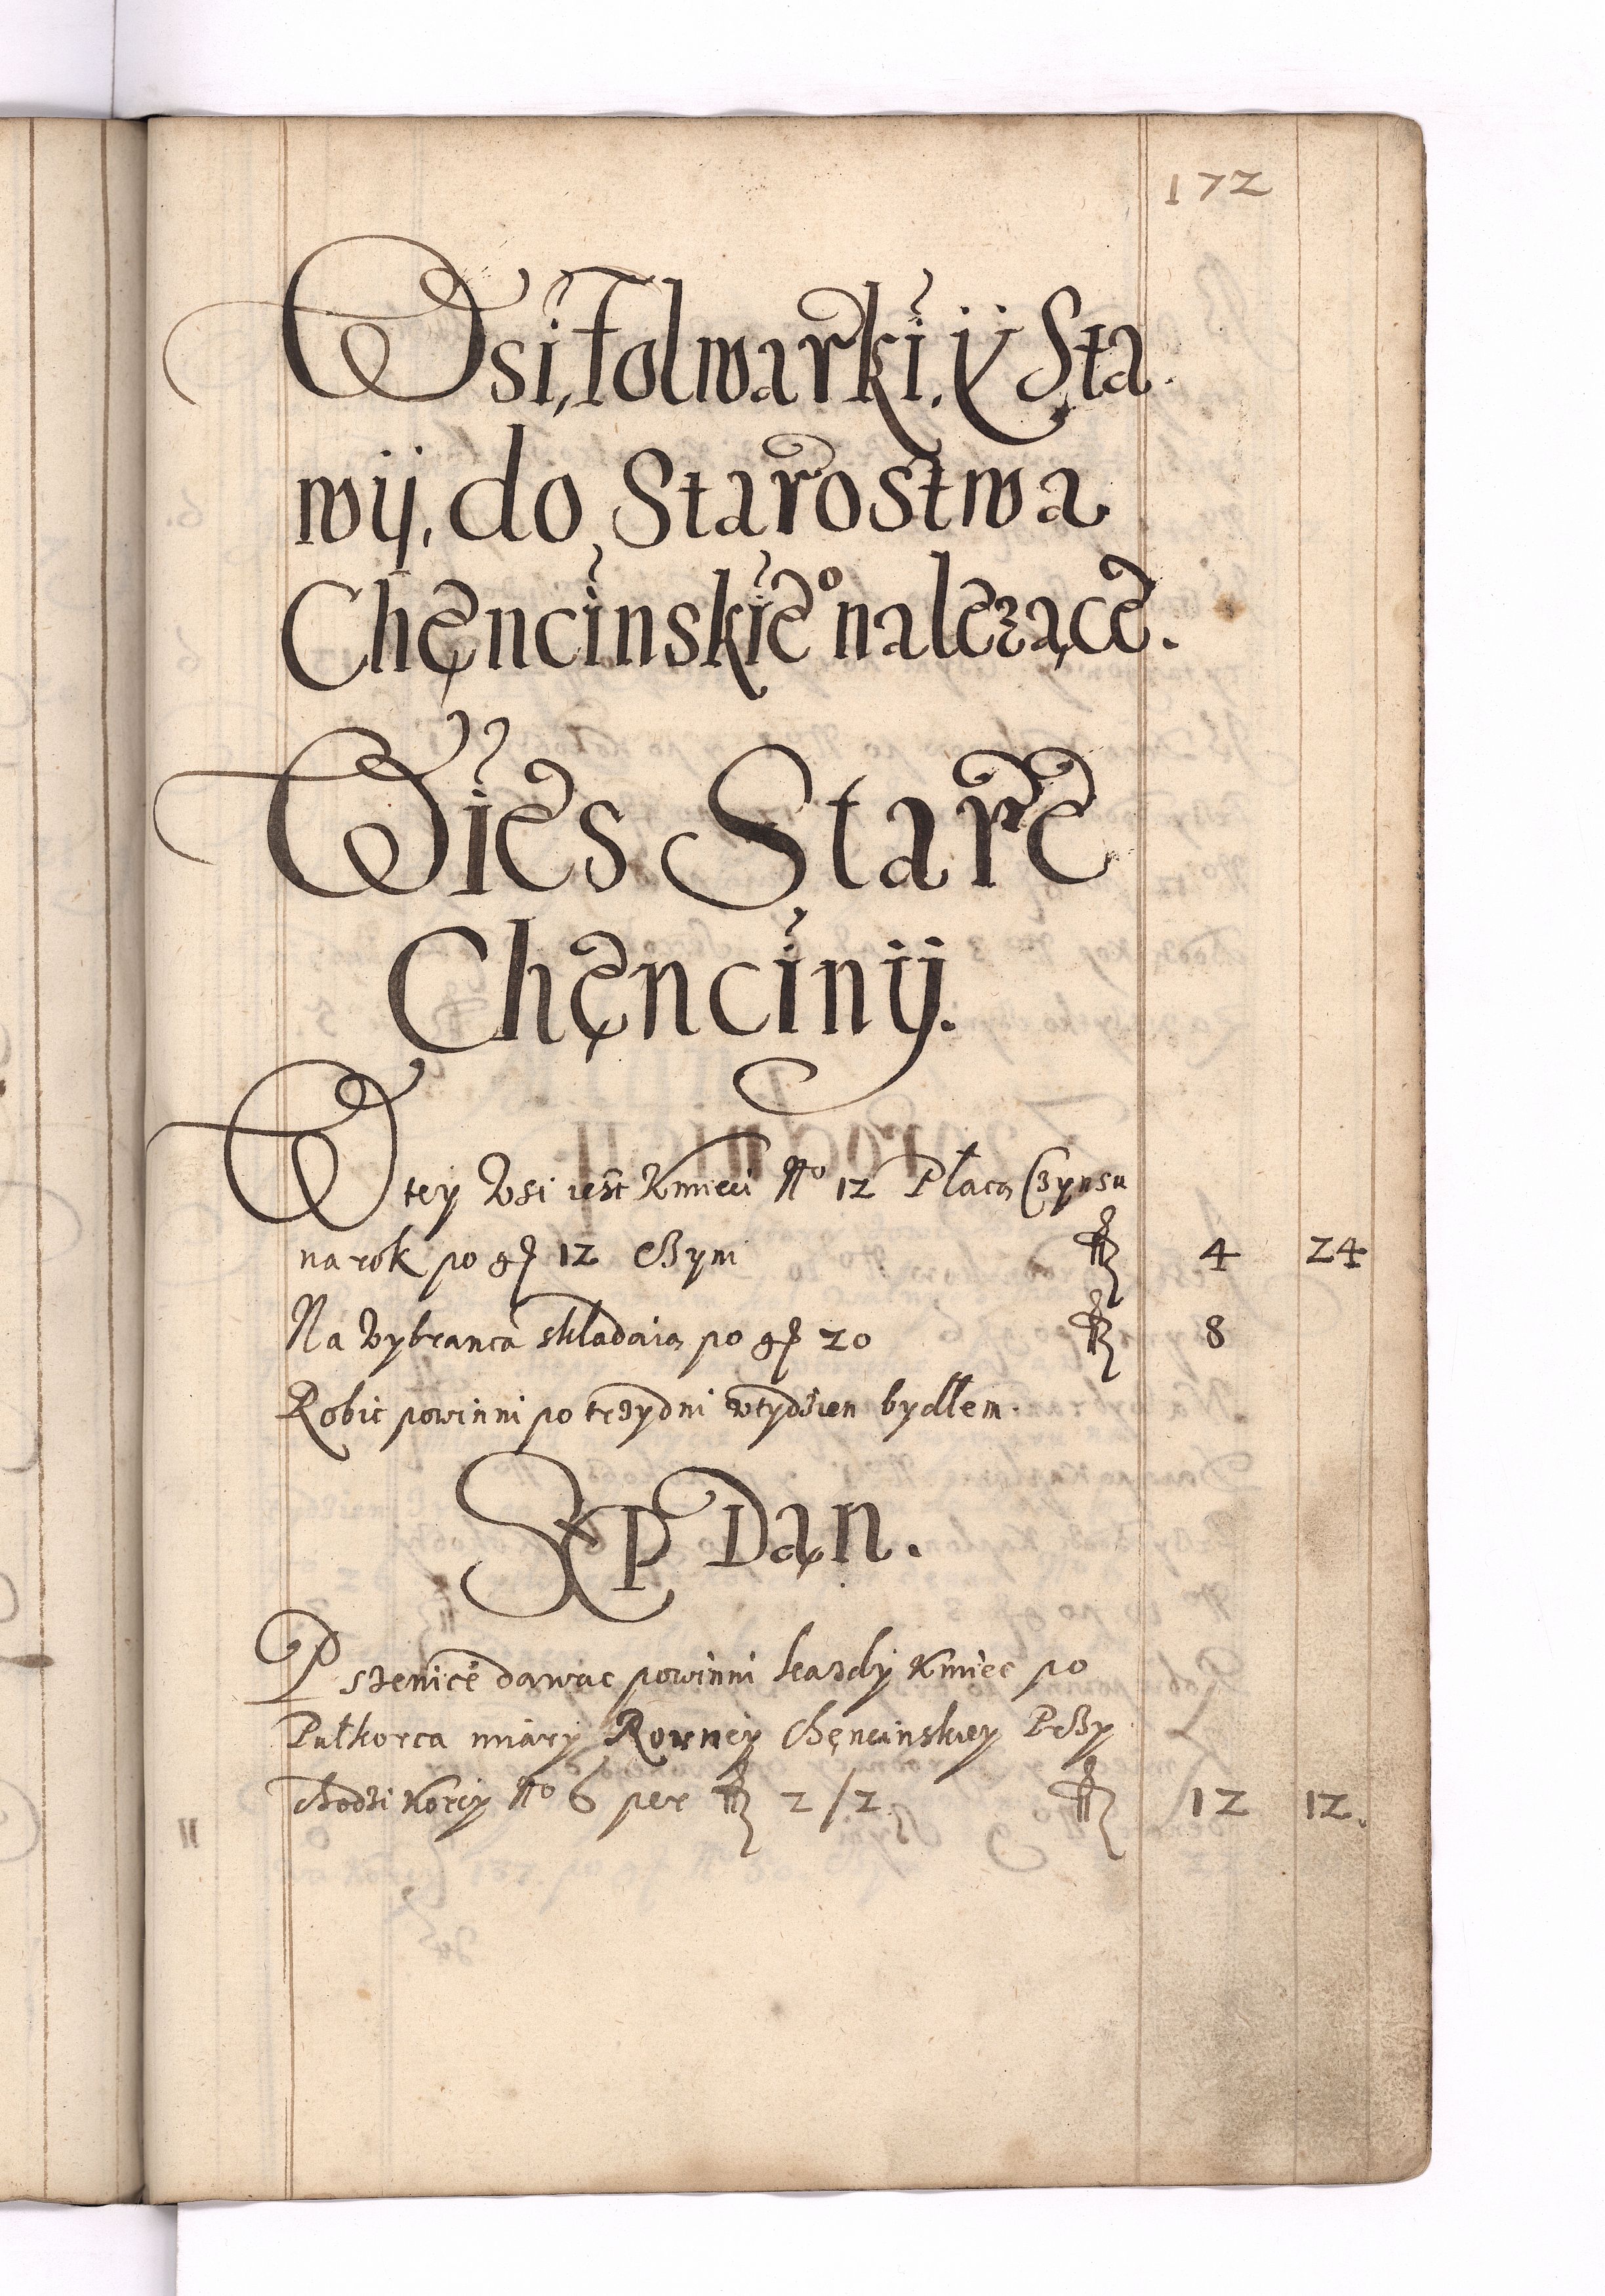 172
Wsi, Folwarki, y Sta
wÿ, do Starostwa
Chęncinskie° nalezące.
Wies Stare
Chęncinÿ.
W tey Wsi iest Kmieci N° 12 Płacą Czynsu
na rok po g 12 Czyni 4 24
Na Wybranca składaią po g 20 8
Robic powinni po trzy dni w tydzien bydłem.
Z P Dąn.
Pszenice dawac powinni kazdy Kmiec po
Pułkorca miary Rowney Chęncinskiey Przy
chodzi Korcy N° 6 per 2/2 12 12.